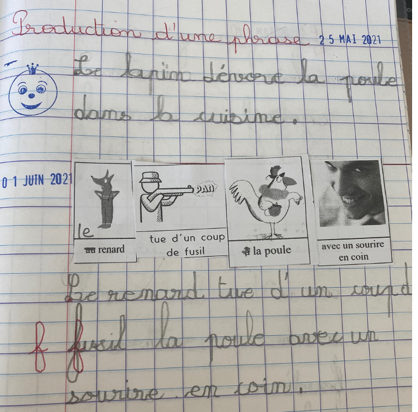 Production d'une phrase 25 MAI 2021
Le lapin dévore la poule
dans la cuisine.
01 JUIN 2021
PAN
le
un renard
tue d'un coup
de fusil
la poule
avec un sourire
en coin
Le renard tue d'un coup d
f fusil la poule avec un
sourire en coin.